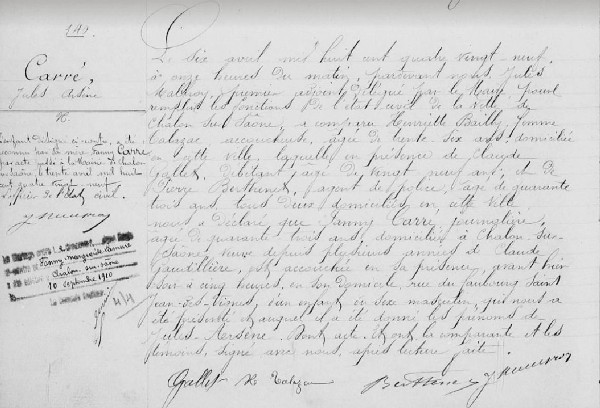 149.
Carré,
Jules Arsène
N.
L'enfant désigné ci contre, a été
reconnu par la mère Fanny Carré
par acte passé à la Mairie de Chalon
sur Saône, le trente avril mil huit
cent quatre vingt neuf
L'officier de l'état civil
Fanny Marguerite
Chalon-sur-Saône
10 septembre 1910
Le six avril mil huit cent quatre vingt-neuf,
à onze heures du matin, pardevant nous, Jules
premier adjoint délégué par le Maire pour
remplir les fonctions de l'état civil de la ville de
Chalon sur Saône, a comparu Henriette Bailly, femme
accoucheuse, âgée de trente-six ans, domiciliée
en cette ville, laquelle en présence de Claude
Gallet, débitant, âgé de vingt neuf ans, et de
Pierre agent de police, âgé de quarante
trois ans, tous deux domiciliés en cette ville
nous a déclaré que Fanny Carré, journalière,
âgée de quarante trois ans, domiciliée à Chalon sur
Saône, veuve depuis plusieurs années de Claude
Gaudillière, est accouchée en sa présence, avant hier
soir à cinq heures, en son domicile, rue du faubourg Saint
Jean-des-Vignes, d'un enfant du sexe masculin, qui nous a
été présenté et auquel il a été donné les prénoms de
Jules-Arsène. Dont acte. Et ont, la comparante et les
témoins, signé avec nous, après lecture faite.
Gallet